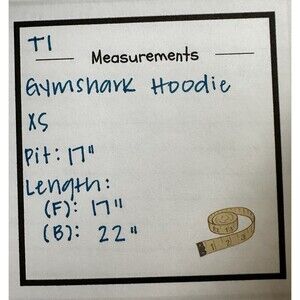 T1
Measurements
Gymshark Hoodie
XS
Pit: 17"
Length:
(F): 17"
(B): 22"
1 2 3